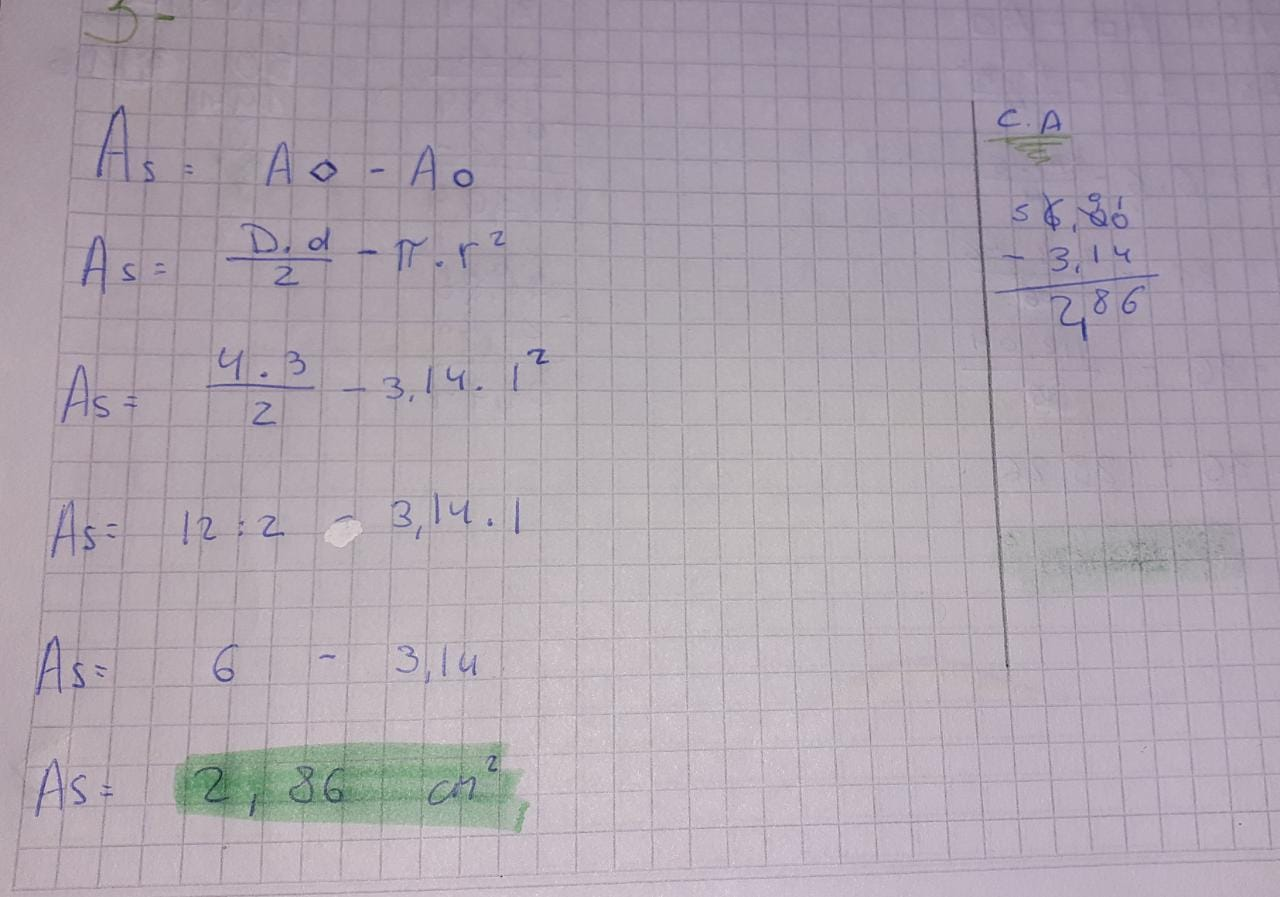 3-
As = A◇ - A○
As = D.d/2 - π.r²
As = 4.3/2 - 3,14.1²
As = 12:2 - 3,14.1
As = 6 - 3,14
As = 2,86 cm²
C.A
5 6,00
- 3,14
2,86